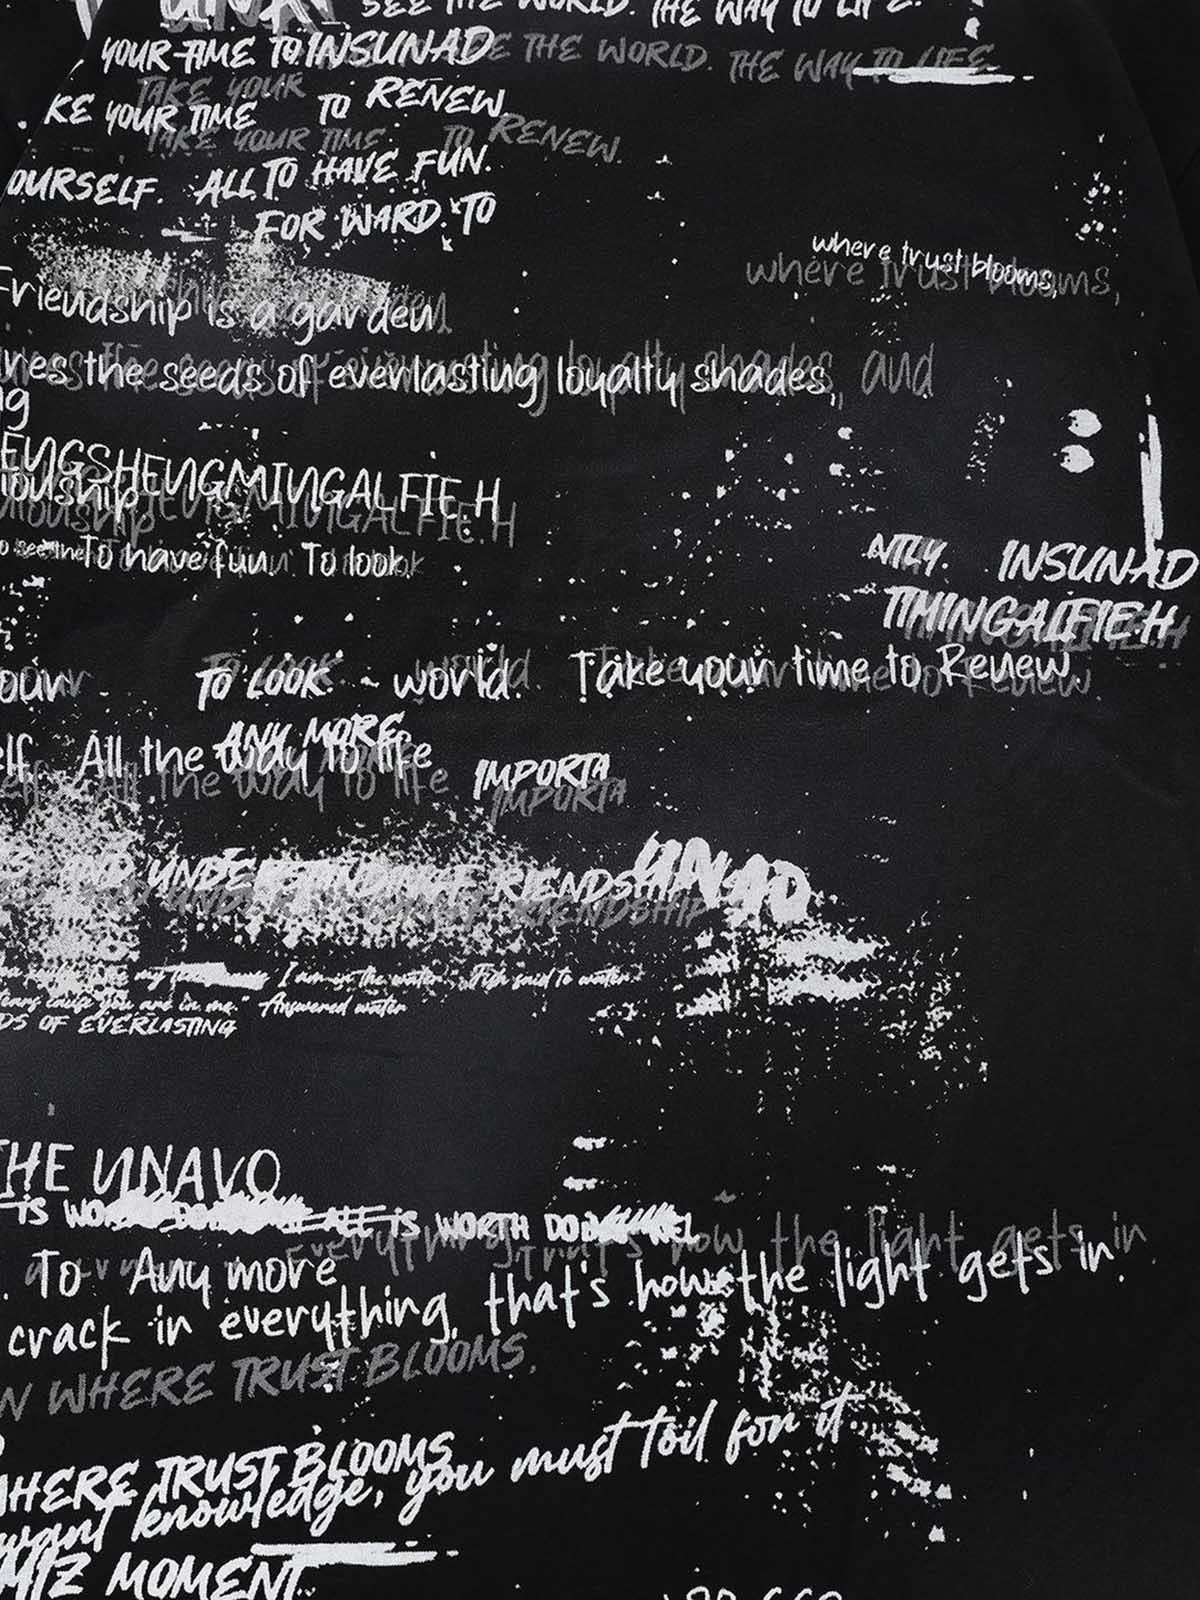 SEE THE WORLD. THE WAY TO LIFE.
YOUR TIME TO INSUNAD THE WORLD. THE WAY TO LIFE.
TAKE YOUR
KE YOUR TIME TO RENEW
TAKE YOUR TIME TO RENEW.
OURSELF. ALL TO HAVE FUN.
FOR WARD. TO
where trust blooms,
where trust blooms,
Friendship is a garden
the seeds of everlasting loyalty shades, and
ENGSHENGMINGALFIE.H
To have fun. To look.
NTLY. INSUNAD
TIMINGALFIE.H
our TO LOOK. world. Take your time to Renew
ANY MORE
elf. All the way to life
IMPORTA
IMPORTA
AND UNDERSTANDING FRIENDSHIP UNAD
my I am in the water. Fish said to water
tears cause you are in me." Answered water
DS OF EVERLASTING
THE UNAVO
IS WO IS WORTH DO
everything, that's how the light gets in
. To Any more
crack in everything, that's how the light gets in.
N WHERE TRUST BLOOMS.
WHERE TRUST BLOOMS
want knowledge, you must toil for it.
MOMENT